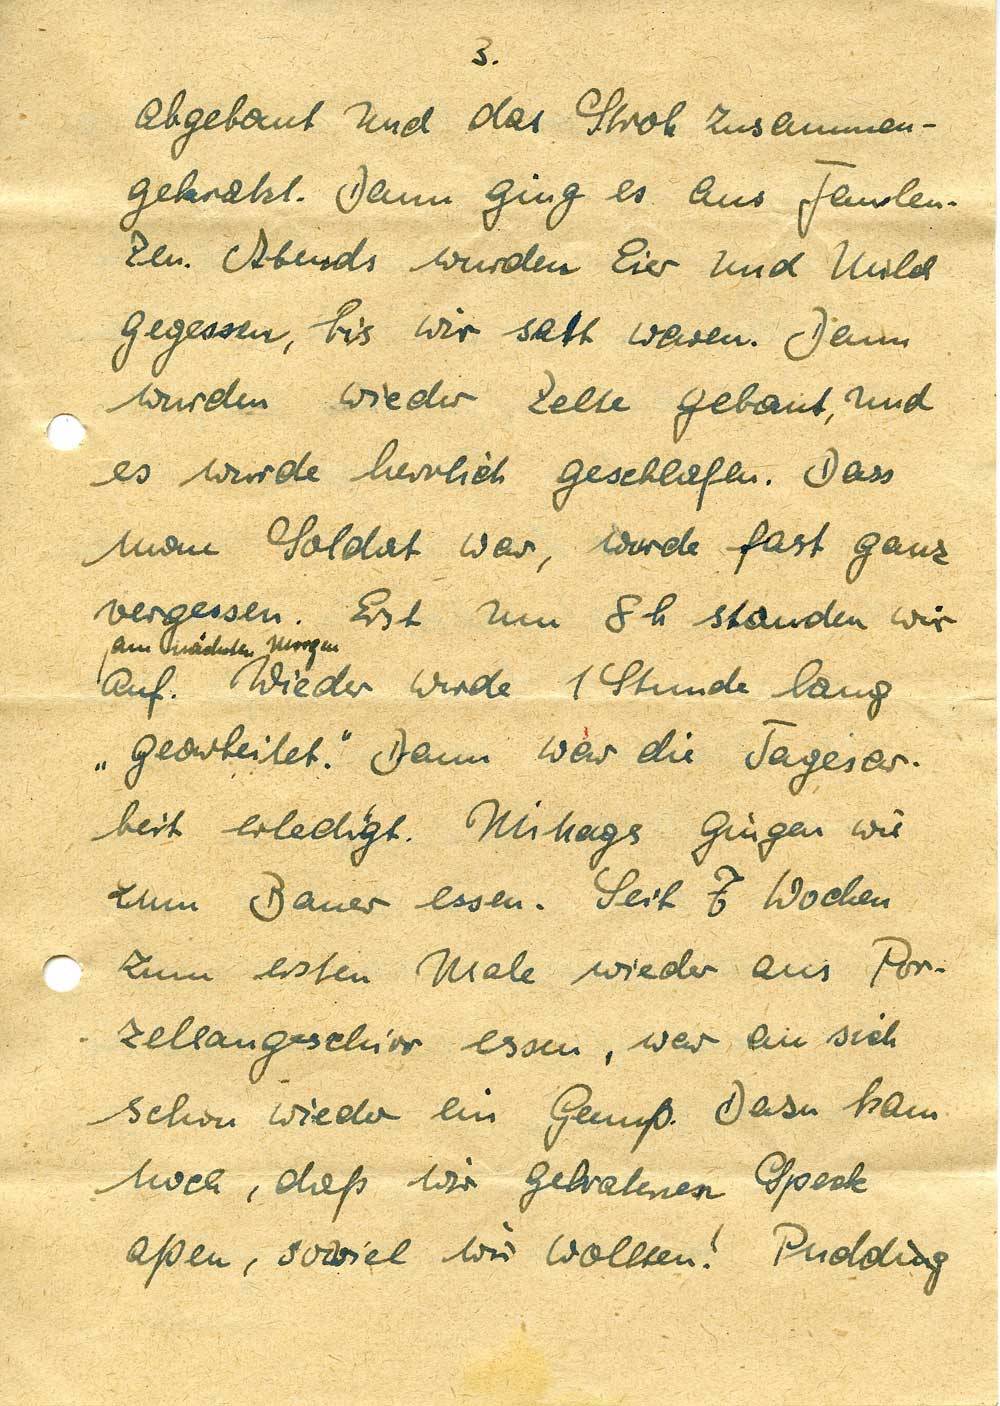 3.
abgebaut und das Stroh zusammen-
gekratzt. Dann ging es ans Faulen-
zen. Abends wurden Eier und Milch
gegessen, bis wir satt waren. Dann
wurden wieder Zelte gebaut, und
es wurde herrlich geschlafen. Dass
man Soldat war, wurde fast ganz
vergessen. Erst um 8 h standen wir
am nächsten Morgen
auf. Wieder wurde 1 Stunde lang
„gearbeitet." Dann war die Tagesar-
beit erledigt. Mittags gingen wir
zum Bauer essen. Seit 7 Wochen
zum ersten Male wieder aus Por-
zellangeschirr essen, war an sich
schon wieder ein Genuß. Dazu kam
noch, daß wir gebratenen Speck
aßen, soviel wir wollten! Pudding